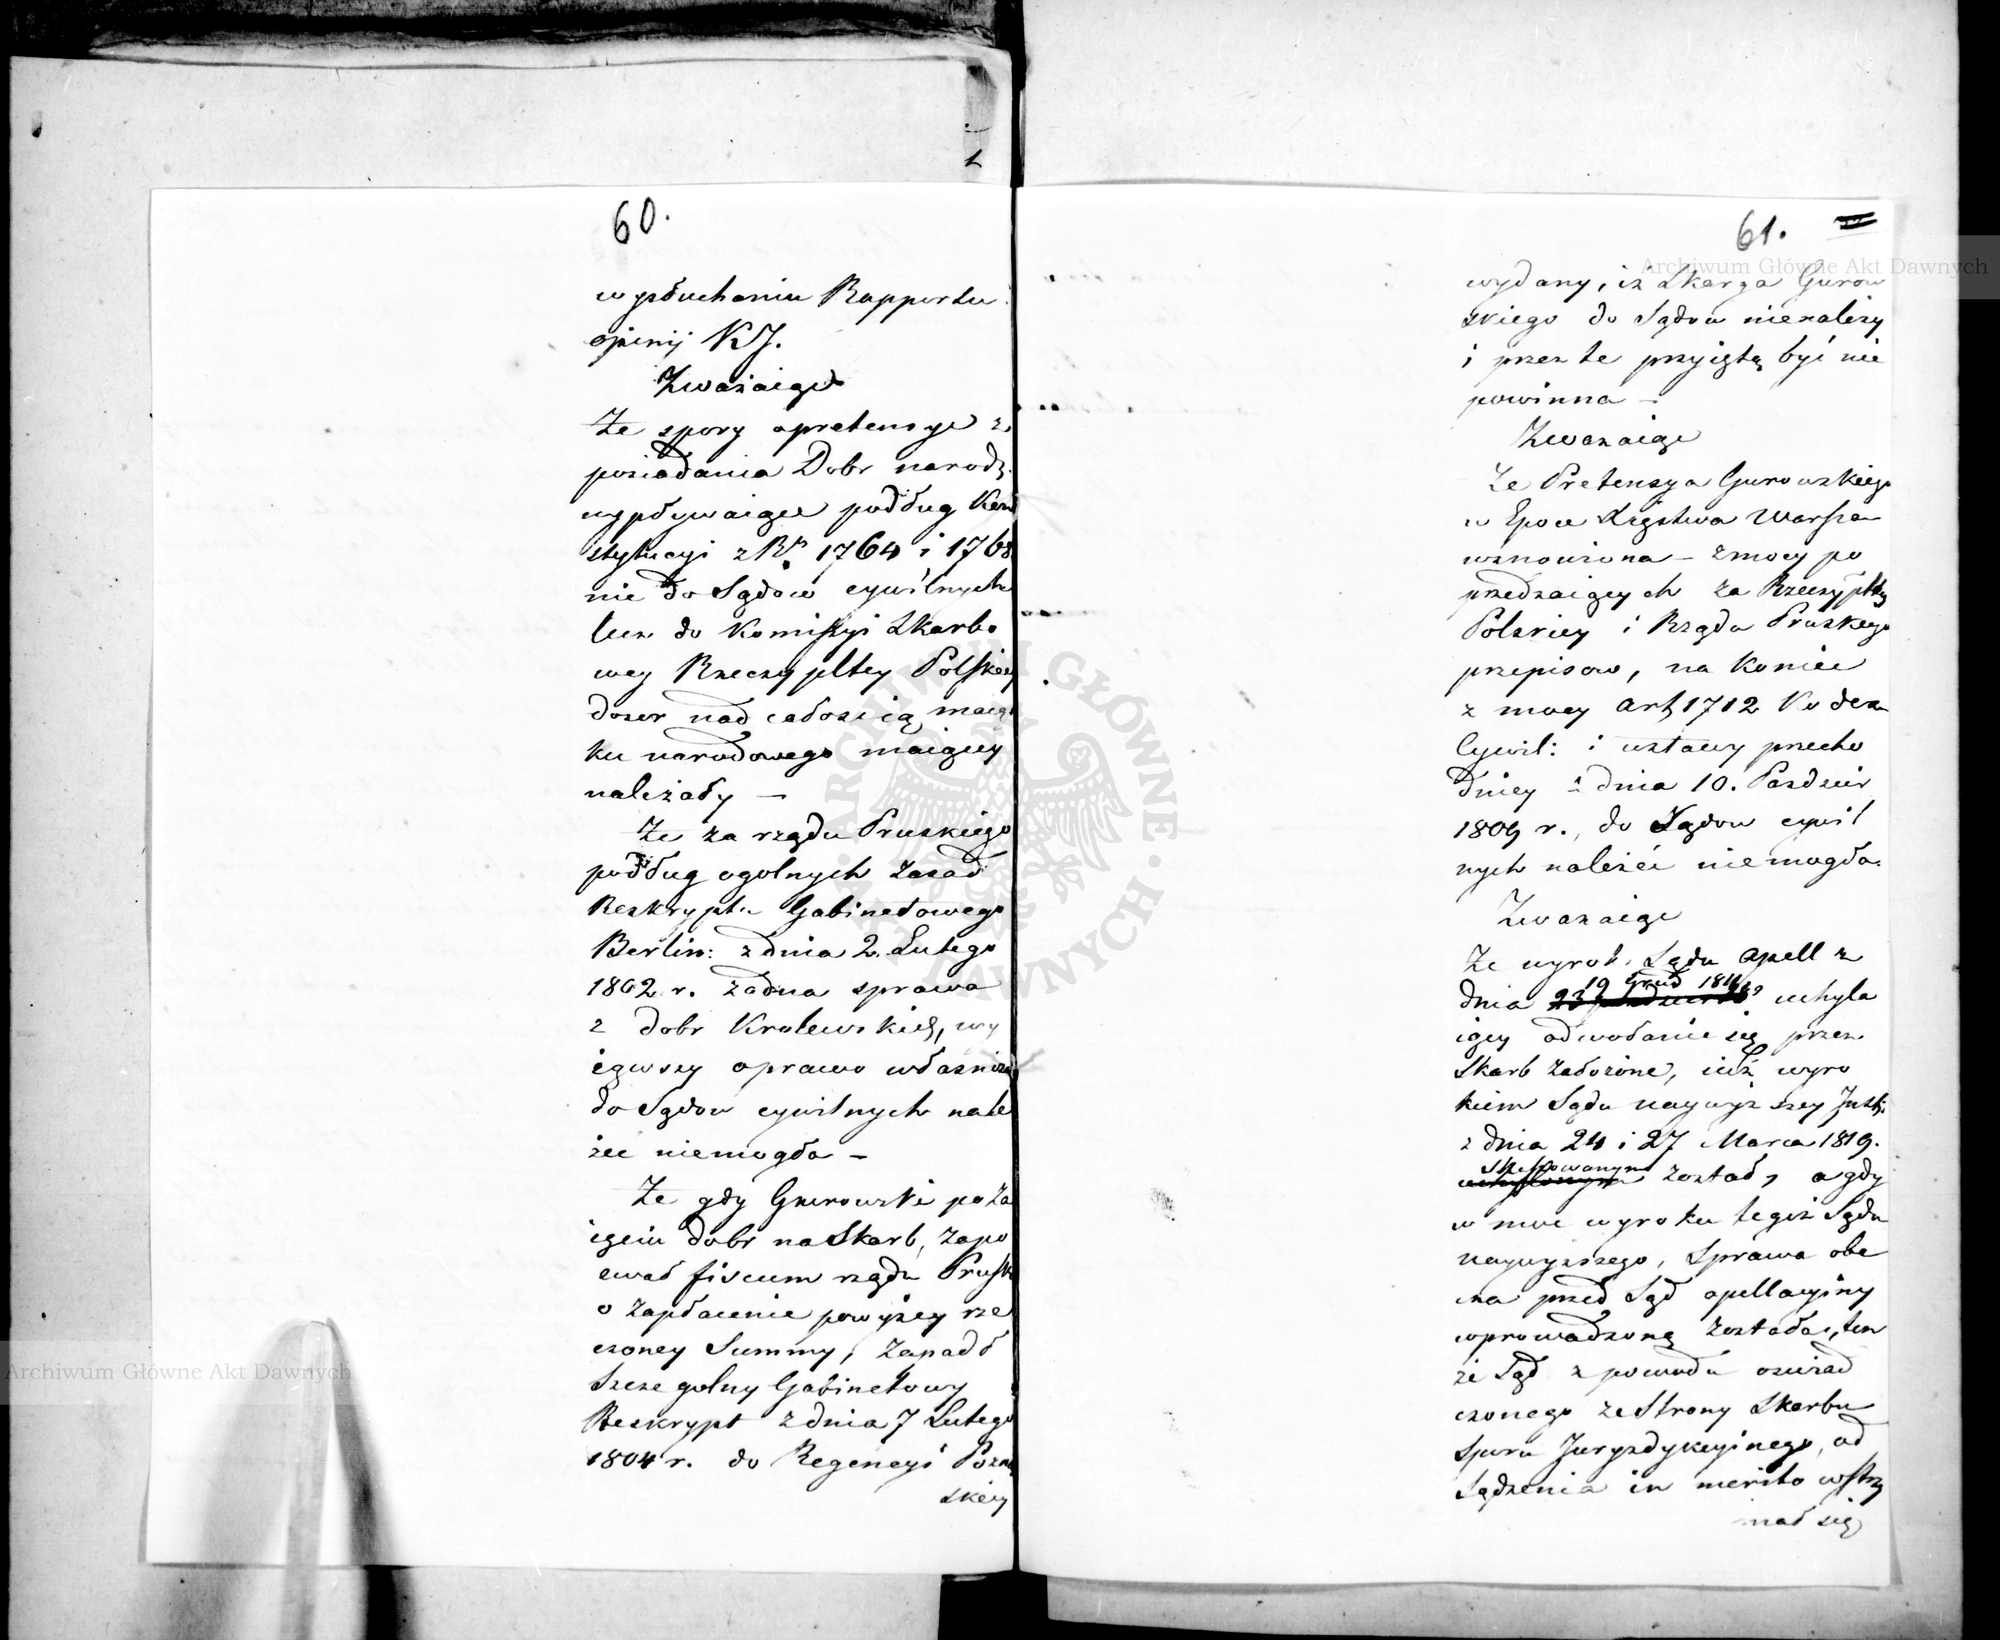 60.
wysłuchaniu Rapportu
opinij KJ.
Zważaiąc
Że spory o pretensye z
posiadania Dobr narod:
wypływaiące podług Kon
stytucyi z Rk 1764 i 1768
nie do Sądow cywilnych
lecz do Komissyi Skarbo
wey Rzeczypltey Polskiey
dozor nad całością maiąt
ku narodowego maiącey
należały —
Że za rządu Pruskiego
podług ogolnych zasad
Reskryptu Gabinetowego
Berlin: z dnia 2. Lutego
1802 r. żadna sprawa
z dobr Krolewskich, wy
iąwszy o prawo własności
do Sądow cywilnych nale
żeć niemogła —
Że gdy Gurowski po za
ięciu dobr na Skarb, zapo
zwał fiscum rządu Prusk
o zapłacenie powyżey rze
czoney Summy, zapadł
szczegolny Gabinetowy
Reskrypt z dnia 7 Lutego
1804 r. do Regencyi Pozna
skiey
61.
wydany, iż Skarga Gurow
skiego do Sądow nienależy
i przez te przyiętą być nie
powinna —
Zważaiąc
Że Pretensya Gurowskiego
w Epoce Xięstwa Warsza
wznowiona — z mocy po
przedzaiących za Rzeczypltey
Polskiey i Rządu Pruskiego
przepisow, na koniec
z mocy art 1712 Kodexu
Cywil: i ustawy przecho
dniey z dnia 10. Pazdzier
1809 r., do Sądow cywil
nych należeć niemogła.
Zważaiąc
Że wyrok Sądu apell z
19 Grud 181
dnia uchyla
iący odwołanie się przez
Skarb założone, iuż wyro
kiem Sądu naywyższey Inst:
z dnia 24 i 27 Marca 1819.
skassowanym
został, a gdy
w moc wyroku tegoż Sądu
naywyższego, Sprawa obe
cna przed Sąd apellacyiny
wprowadzoną została, ten
że Sąd z powodu oświad
czonego ze Strony Skarbu
sporu Juryzdykcyinego, od
sądzenia in merito wstrzy
mał się
Archiwum Główne Akt Dawnych
Archiwum Główne Akt Dawnych
ARCHIWUM GŁÓWNE AKT DAWNYCH